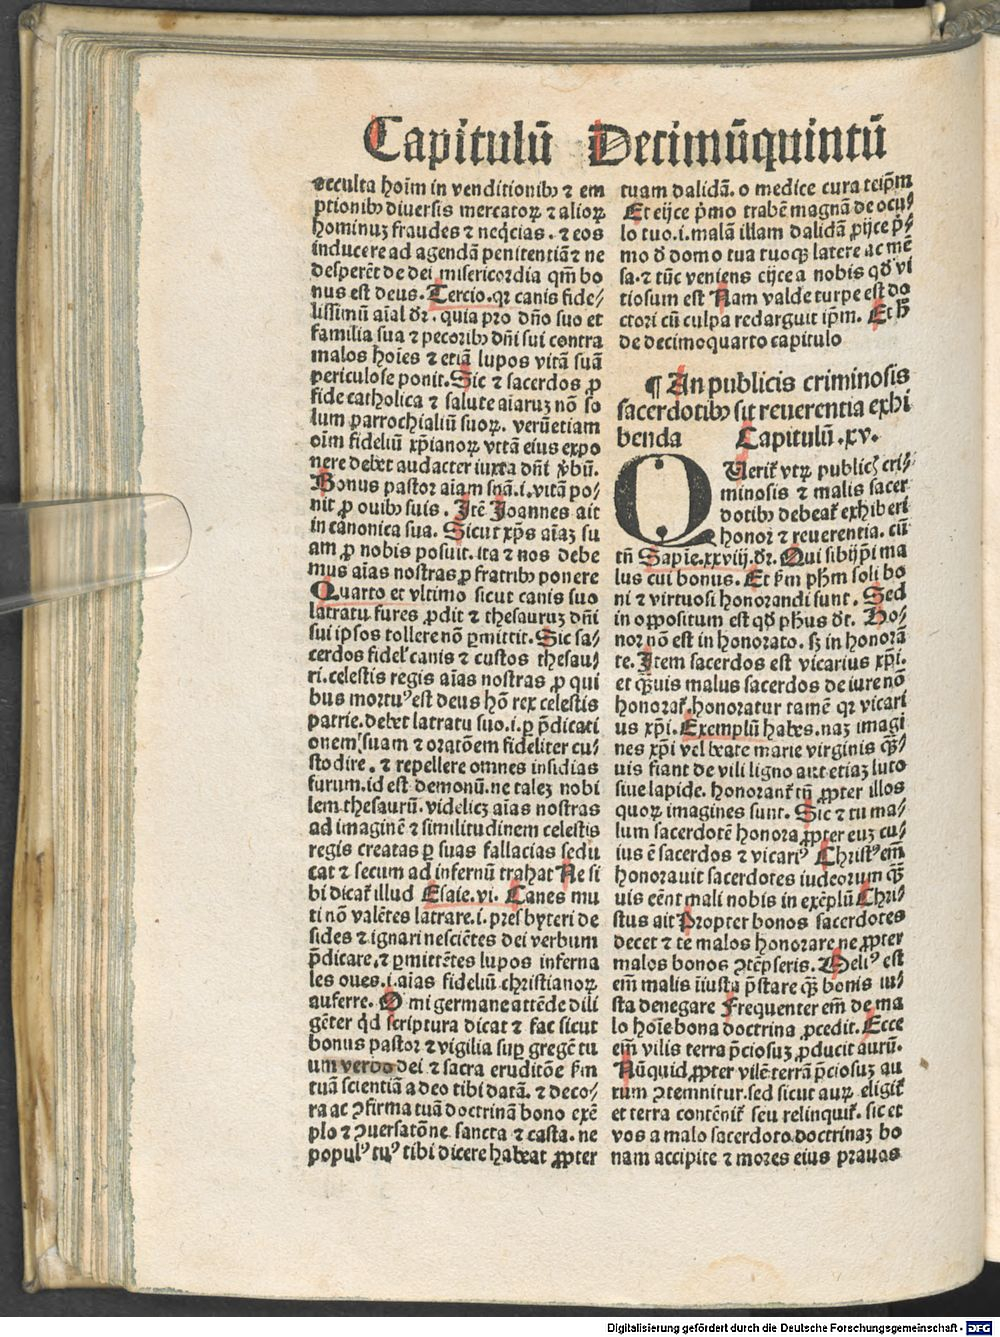 Capitulū Decimūquintū
occulta hoīm in venditionibꝰ ⁊ em
ptionibꝰ diuersis mercatoꝝ ⁊ alioꝝ
hominuꝫ fraudes ⁊ neq̄cias . ⁊ eos
inducere ad agendā penitentiā ⁊ ne
desperēt de dei misericordia qm̄ bo
nus est deus. Tercio. qꝛ canis fide/
lissimū aīal dr̄. quia pro dn̄o suo et
familia sua ⁊ pecoribꝰ dn̄i sui contra
malos hoīes ⁊ etiā lupos vitā suā
periculose ponit. Sic ⁊ sacerdos ꝓ
fide catholica ⁊ salute aīaruꝫ nō so
lum parrochialiū suoꝝ. verūetiam
oīm fideliū xp̄ianoꝝ vitā eius expo
nere debet audacter iuxta dn̄i v̄bū.
Bonus pastor aīam suā.i.vitā po/
nit ꝓ ouibꝰ suis . Itē Joannes ait
in canonica sua. Sicut xp̄s aīaꝫ su
am ꝓ nobis posuit. ita ⁊ nos debe
mus aīas nostras ꝓ fratribꝰ ponere
Quarto et vltimo sicut canis suo
latratu fures ꝓdit ⁊ thesauruꝫ dn̄i
sui ipsos tollere nō ꝑmittit. Sic sa/
cerdos fidelꝭ canis ⁊ custos thesau/
ri. celestis regis aīas nostras ꝓ qui
bus mortuꝰ est deus hō rex celestis
patrie. debet latratu suo.i. ꝑ p̄dicati
onem suam ⁊ oratōem fideliter cu/
stodire . ⁊ repellere omnes insidias
furum. id est demonū. ne taleꝫ nobi
lem thesaurū. videlicꝫ aīas nostras
ad imaginē ⁊ similitudinem celestis
regis creatas ꝑ suas fallacias sedu
cat ⁊ secum ad infernū trahat Ne si
bi dicat᷑ illud Esaie. vi. Canes mu
ti nō valētes latrare.i. presbyteri de
sides ⁊ ignari nesciētes dei verbum
p̄dicare. ⁊ ꝑmittētes lupos inferna
les oues.i. aīas fideliū christianoꝝ
auferre. O mi germane attēde dili
gēter qd̄ scriptura dicat ⁊ fac sicut
bonus pastor ⁊ vigilia suꝑ gregē tu
um verbo dei ⁊ sacra eruditōe s̄m
tuā scientiā a deo tibi datā. ⁊ deco/
ra ac ꝯfirma tuā doctrinā bono exē
plo ⁊ ꝯuersatōne sancta ⁊ casta. ne
populꝰ tuꝰ tibi dicere habeat ꝓpter
tuam dalidā. o medice cura teip̄m
Et eijce pͥmo trabē magnā de ocu/
lo tuo.i. malā illam dalidā ꝓijce pͥ/
mo d̄ domo tua tuoqꝫ latere ac mē
sa. ⁊ tūc veniens eijce a nobis qd̄ vi
tiosum est Nam valde turpe est do
ctori cū culpa redarguit ip̄m. Et h̄
de decimoquarto capitulo
¶ An publicis criminosis
sacerdotibꝰ sit reuerentia exhi
benda Capitulū .xv.
QUerit᷑ vtꝝ publicꝭ cri/
minosis ⁊ malis sacer
dotibꝰ debeat᷑ exhiberi
honor ⁊ reuerentia. cū
tn̄ Sapīe.xxviij. dr̄. Qui sibijp̄i ma
lus cui bonus. Et s̄m ph̄m soli bo
ni ⁊ virtuosi honorandi sunt . Sed
in oppositum est qd̄ ph̄us dt̄. Ho/
nor nō est in honorato. sꝫ in honorā
te. Item sacerdos est vicarius xp̄i.
et qͣuis malus sacerdos de iure nō
honorat᷑. honoratur tamē qꝛ vicari
us xp̄i. Exemplū habes. naꝫ imagi
nes xp̄i vel beate marie virginis qͣ/
uis fiant de vili ligno aut etiaꝫ luto
siue lapide. honorant᷑ tn̄ ꝓpter illos
quoꝝ imagines sunt. Sic ⁊ tu ma/
lum sacerdotē honora ꝓpter euꝫ cu/
ius ē sacerdos ⁊ vicariꝰ Christꝰ em̄
honorauit sacerdotes iudeorum qͣ
uis eēnt mali nobis in exēplū Chri/
stus ait Propter bonos sacerdotes
decet ⁊ te malos honorare ne ꝓpter
malos bonos ꝯtēpseris. Meliꝰ est
em̄ malis īiusta p̄stare qͣ bonis iu/
sta denegare Frequenter em̄ de ma
lo hoīe bona doctrina ꝓcedit. Ecce
em̄ vilis terra p̄ciosuꝫ ꝓducit aurū.
Nūquid ꝓpter vilē terrā p̄ciosuꝫ au
rum ꝯtemnitur. sed sicut auꝝ eligit᷑
et terra contēnit᷑ seu relinquit᷑. sic et
vos a malo sacerdote doctrinaꝫ bo
nam accipite ⁊ mores eius prauas
Digitalisierung gefördert durch die Deutsche Forschungsgemeinschaft - DFG